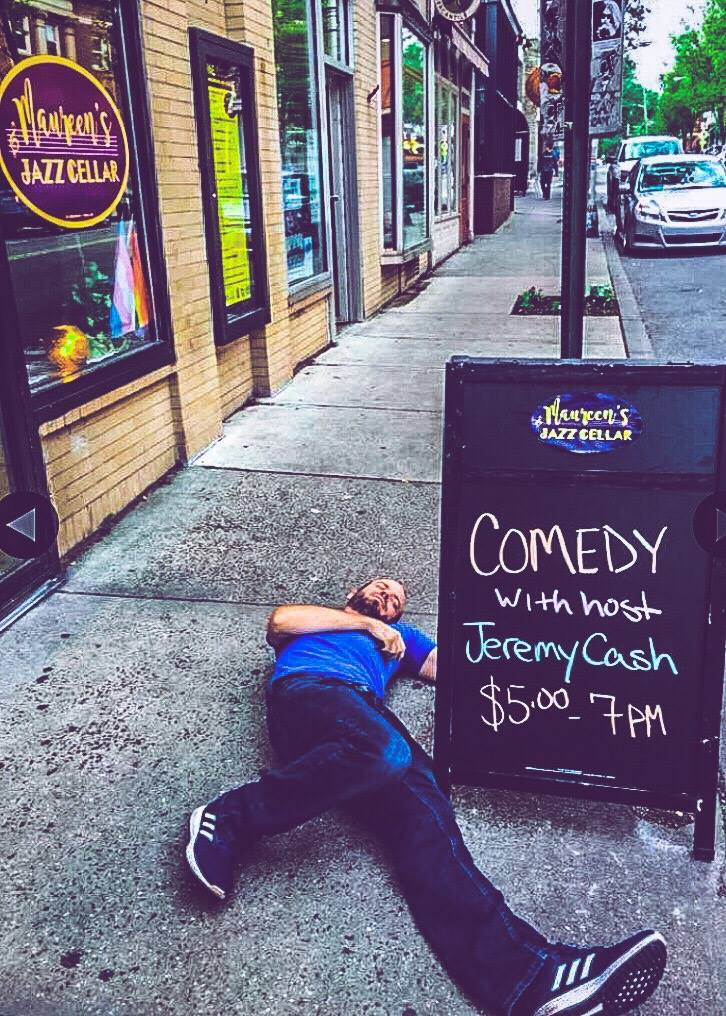 Maureen's
JAZZ CELLAR
Maureen's
JAZZ CELLAR
COMEDY
with host
Jeremy Cash
$5.00 - 7PM